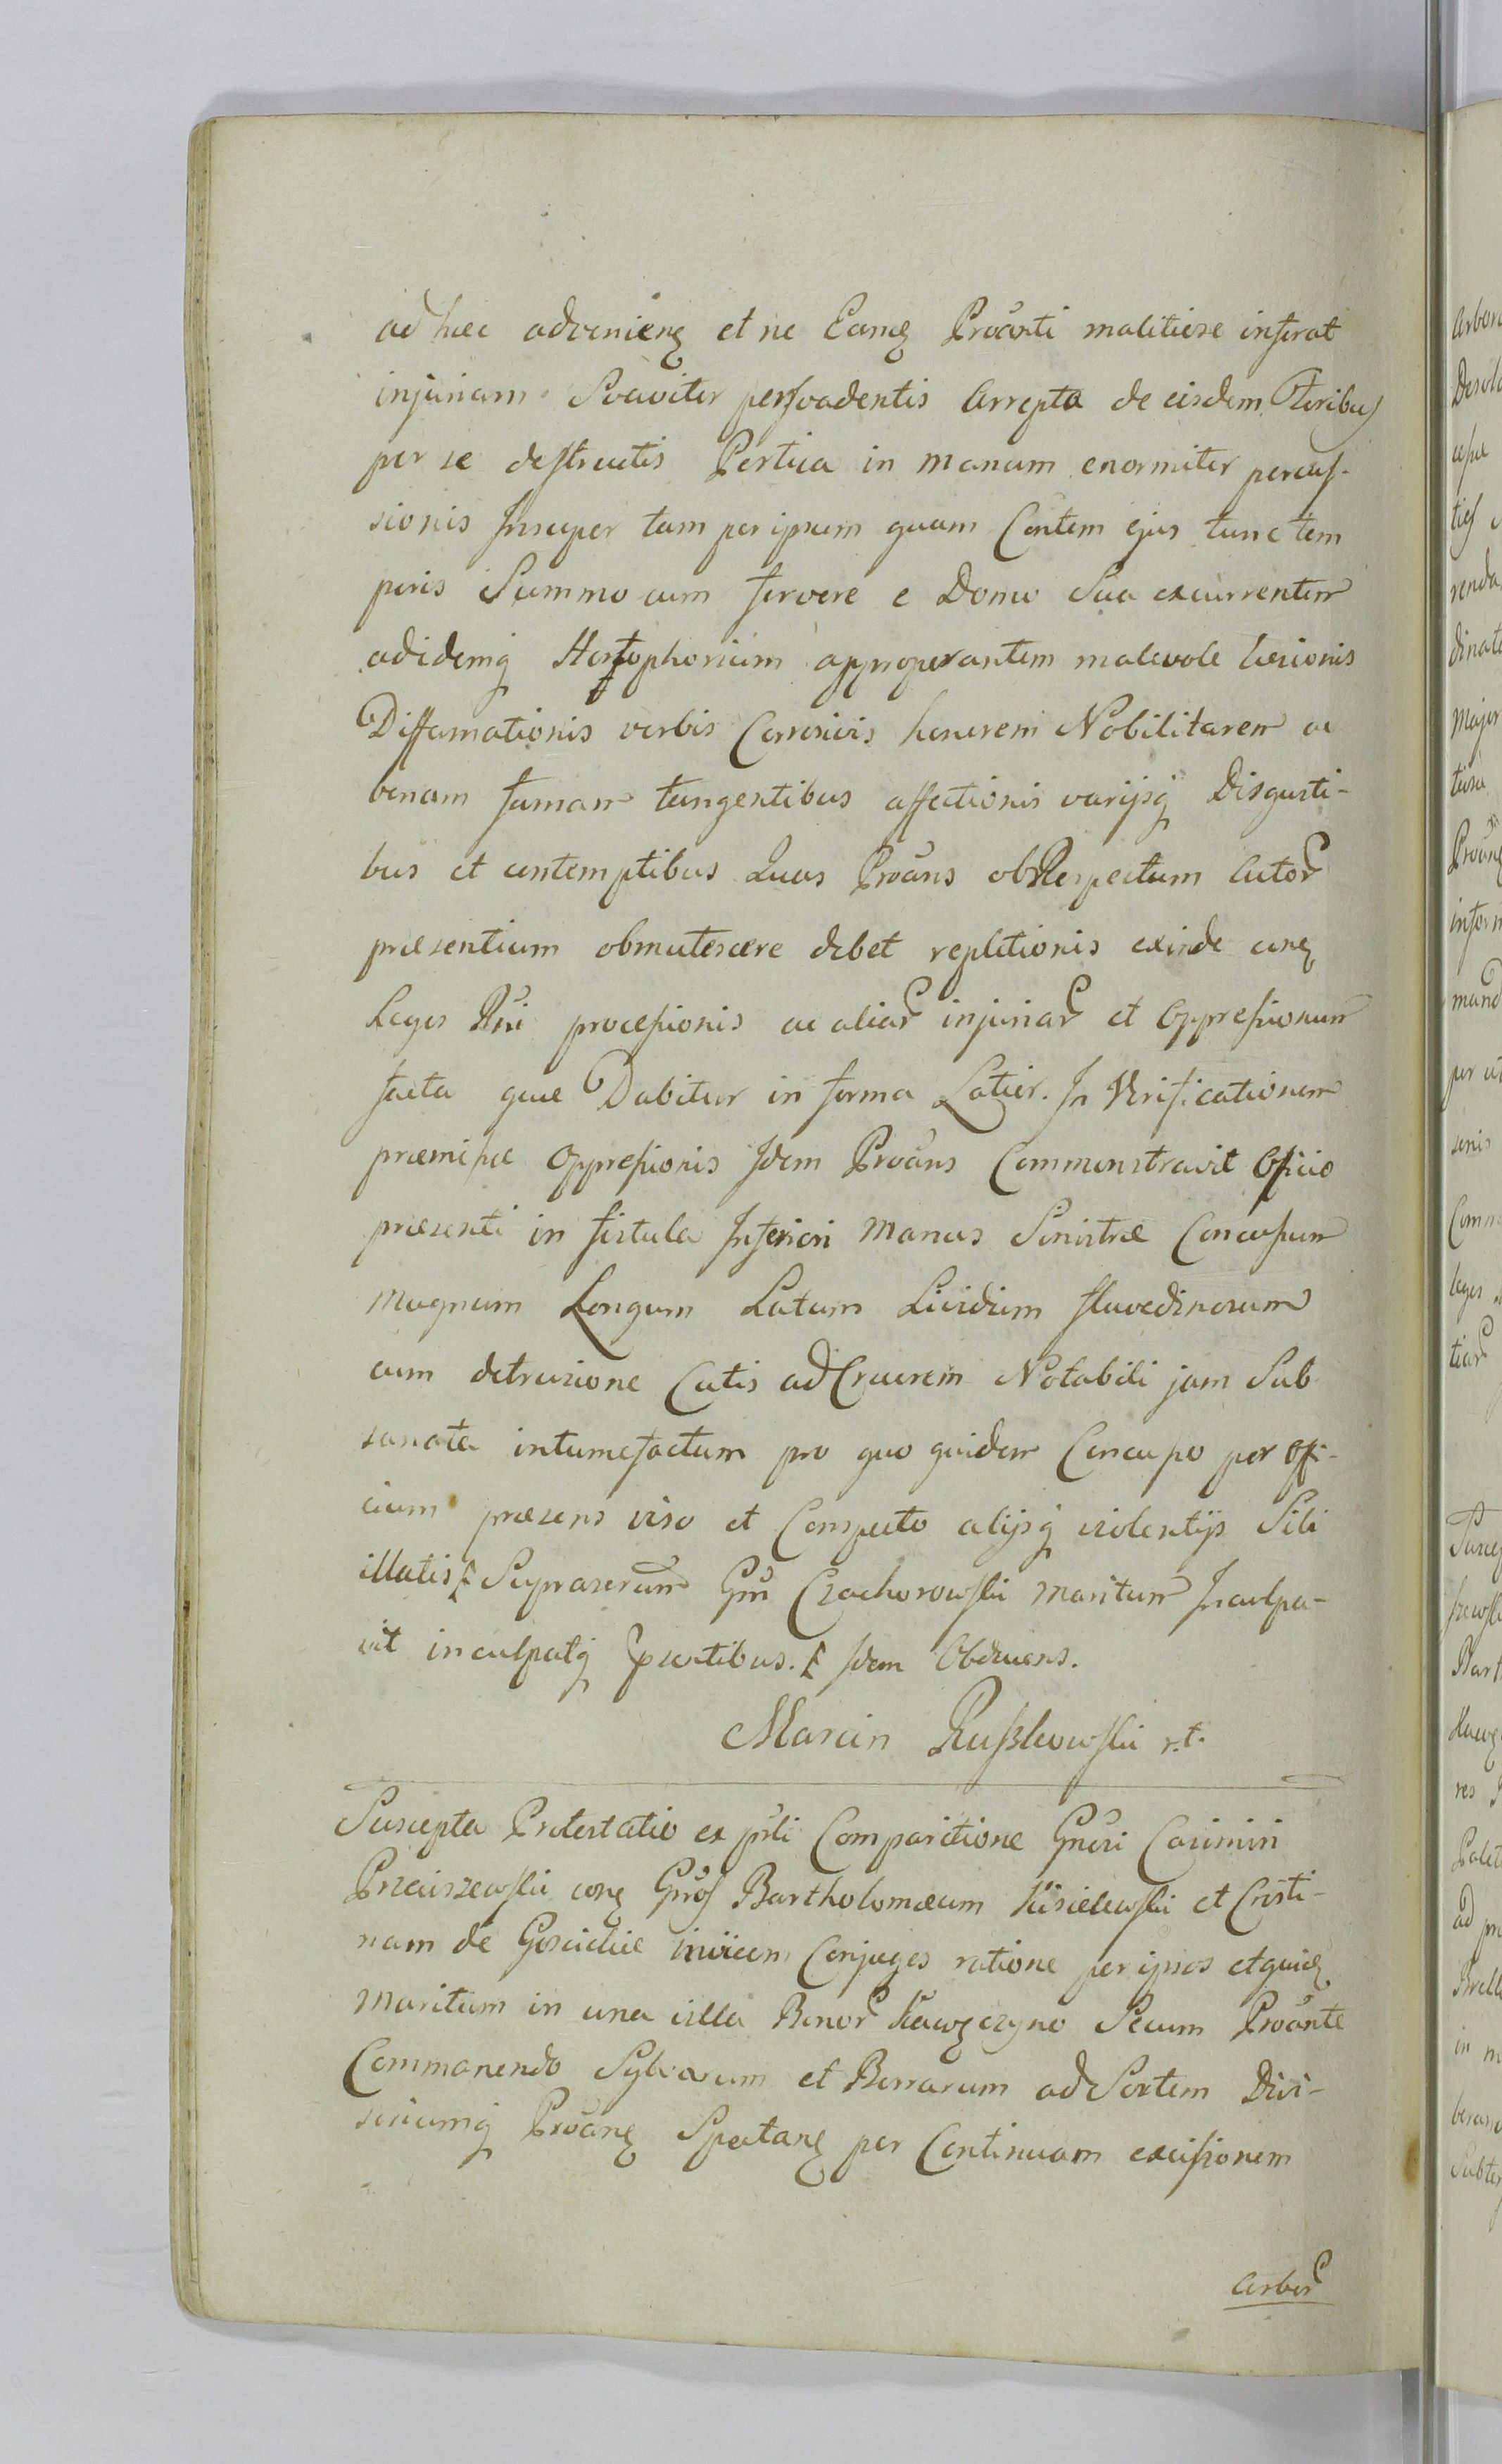 ad hæc advenienꝫ et ne Eamꝫ Proãnti malitiose inferat
injuriam Svaviter persvadentis Arrepta de eisdem Floribus
per se destructis Pertica in manum enormiter percus-
sionis Insuper tam per ipsum quam Contem ejus tunc tem
poris Summo cum fervore e Domo Sua excurrentem
ad idemq Hortophorium approperantem malevole læsionis
Diffamationis verbis Corrosivis honorem Nobilitarem ac
bonam famam tangentibus affectionis varijsq Disgusti-
bus et contemptibus Quos Proãns ob Respectum Actor
præsentium obmutescere debet repletionis exinde conꝫ
Leges Rñi processionis ac aliar injuriar et Oppressionum
facta quæ Dabitur in forma Latior. In Verificationem
præmissæ Oppressionis Idem Proãns Commonstravit Officio
præsenti in fistula Inferiori manus Sinistræ Concussum
magnum Longum Latum Lividum flavedinosum
cum detrusione Cutis ad Cruorem Notabili jam Sub
sanata intumefactum pro quo quidem Concusso per offi-
cium præsens viso et Conspecto alijsq violentijs Sibi
illatis Supraserum Gm Czachorowski maritum Inculpa-
vit inculpatq præsentibus. Idem Obducens.
Marcin Ruszkowski r.t.
Suscepta Protestatio ex psti Comparitione Gnosi Casimiri
Przeciszewski conꝫ Gnos Bartholomæum Kisielewski et Cristi-
nam de Goscickie invicem Conjuges ratione per ipsos et quidꝫ
maritum in una villa Bonor Kawęczyno Secum Proãnte
Commanendo Sylvarum et Borrarum ad Sortem Divi-
sionumq Proãnꝫ Spectanꝫ per Continuam excissionem
Arbor